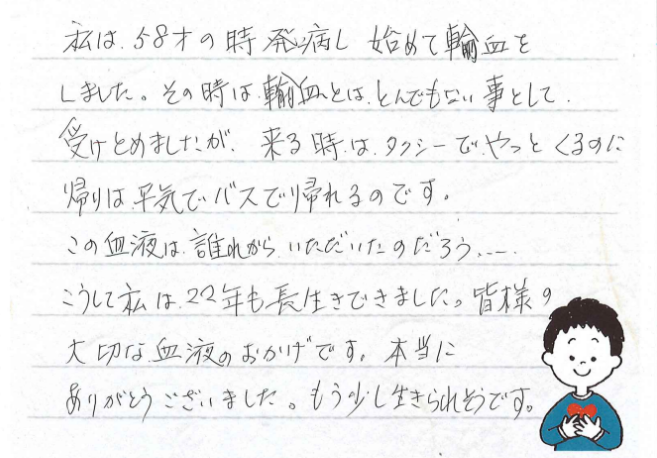 私は、58才の時発病し 始めて輸血を
しました。その時は輸血とは、とんでもない事として、
受けとめましたが、来る時は、タクシーで、やっとくるのに
帰りは、平気でバスで帰れるのです。
この血液は、誰れから、いただいたのだろう、---
こうして私は、22年も長生きできました。皆様の
大切な血液のおかげです。本当に
ありがとうございました。もう少し生きられそうです。